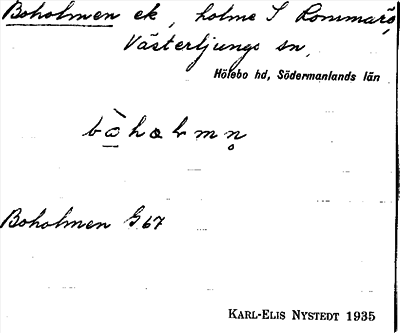 Boholmen ek, holme S Rommarö,
Västerljungs sn,
Hölebo hd, Södermanlands län
bòhalmn̥
Boholmen G 67
KARL-ELIS NYSTEDT 1935